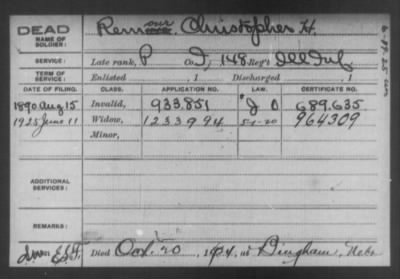 DEAD
NAME OF SOLDIER: Christopher H.
SERVICE: Late rank, P Co. I, 148 Reg't Ill Inf.
TERM OF SERVICE: Enlisted , 1 Discharged , 1
DATE OF FILING. CLASS. APPLICATION NO. LAW. CERTIFICATE NO.
1890 Aug 15 Invalid, 933.851 J O 689.635
1925 June 11 Widow, 1233994 5-1-20 964309
Minor,
ADDITIONAL SERVICES:
REMARKS:
Died Oct. 20, 1924, at Bingham, Nebr